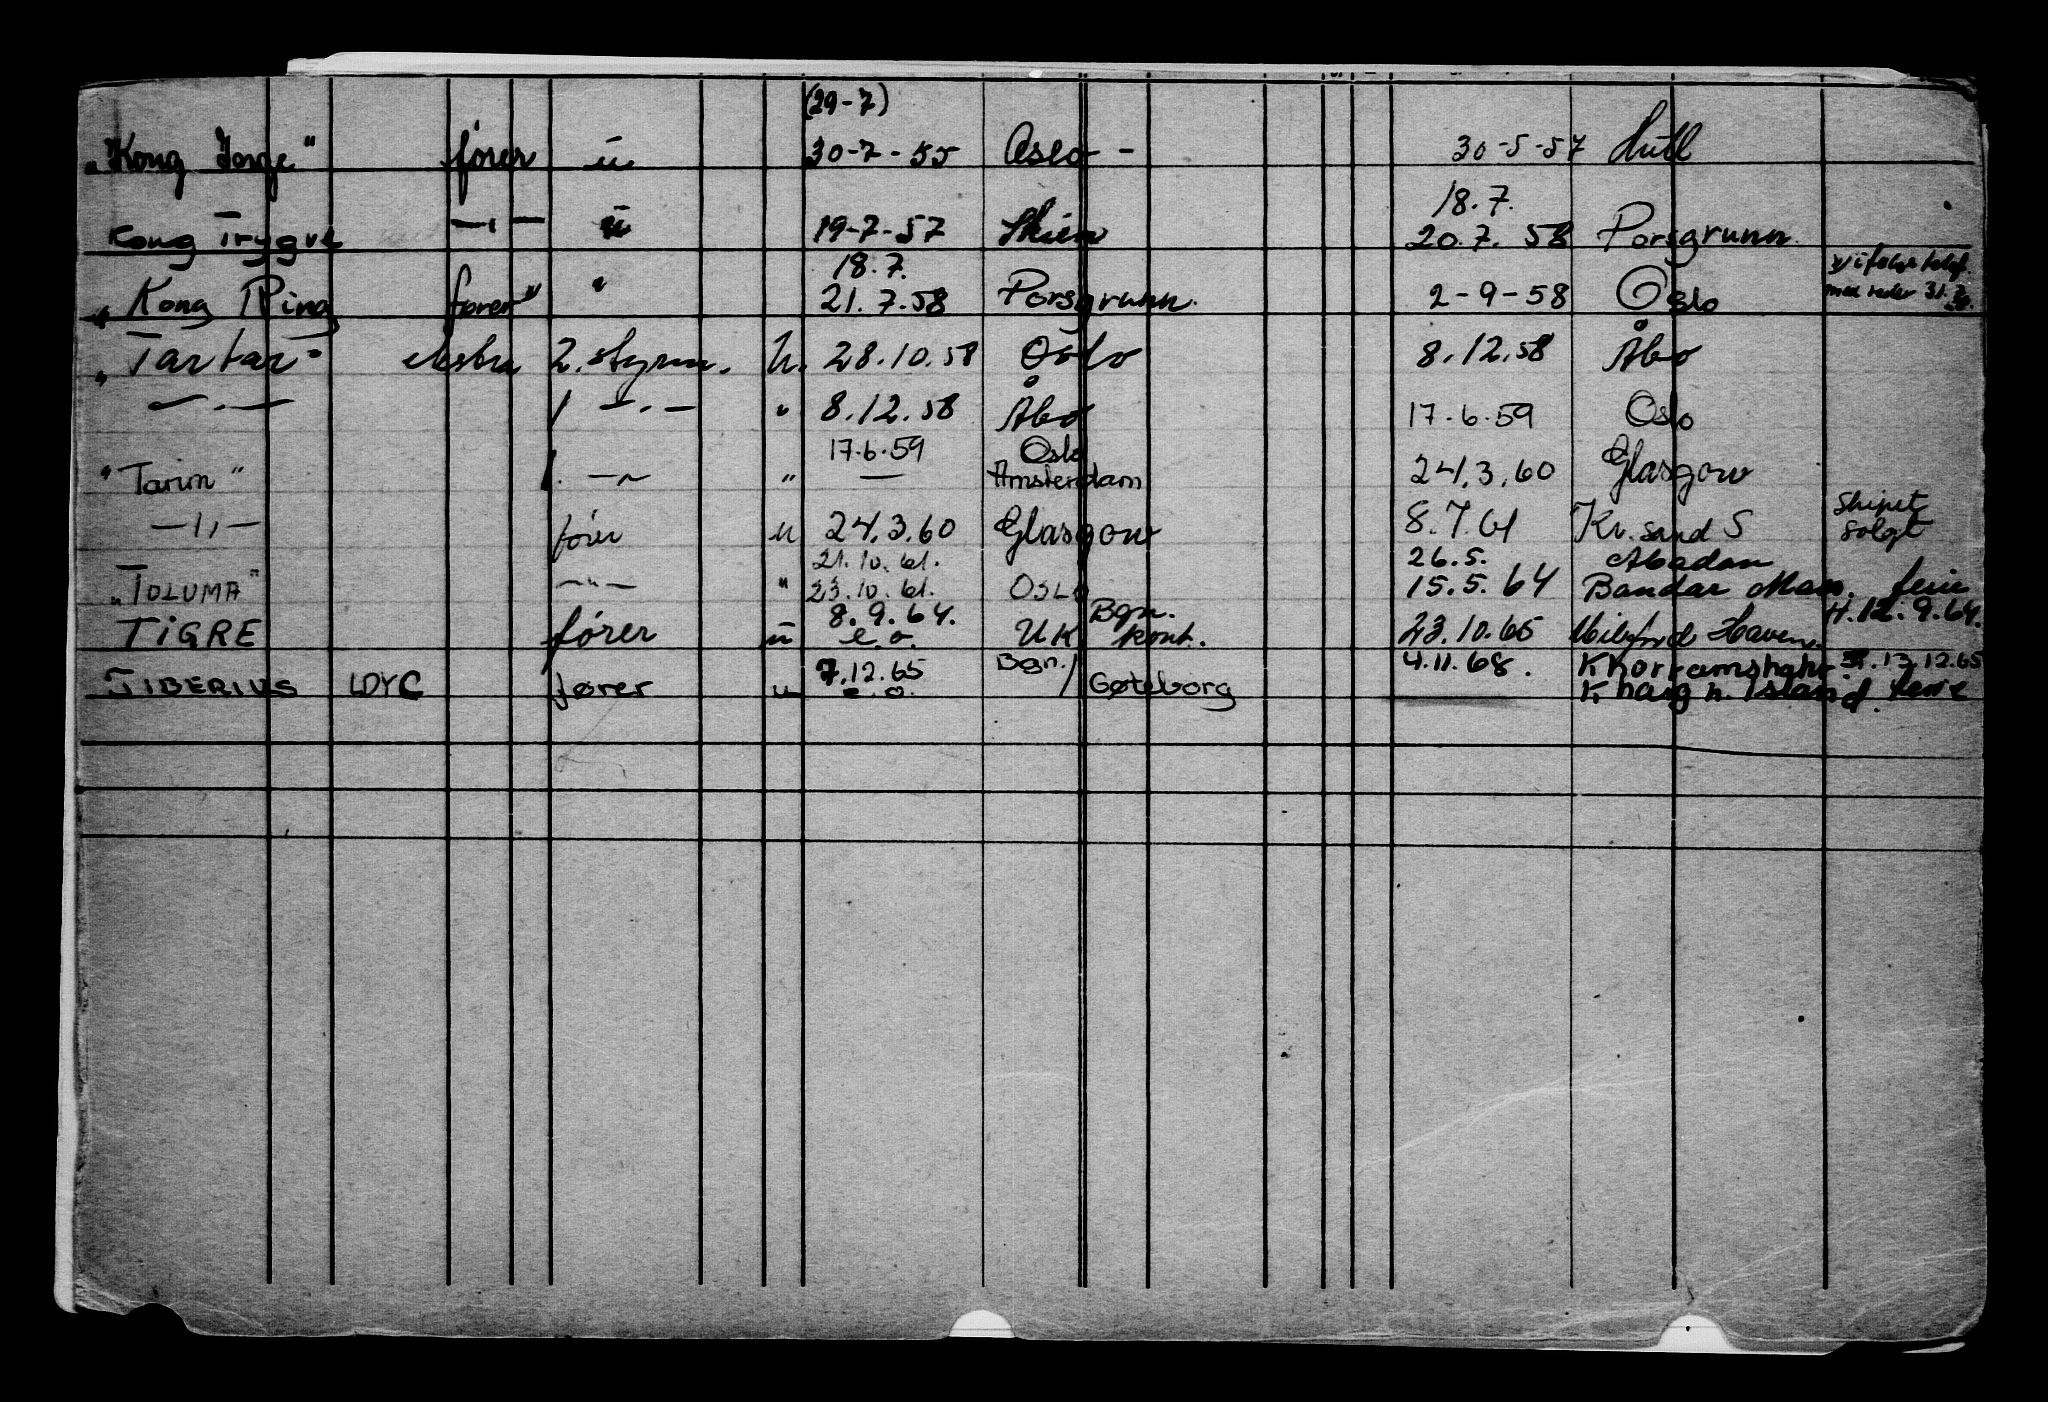 (29-7)
"Kong Inge" fører u 30-7-55 Oslo - 30-5-57 Hull
18.7.
Kong Trygve —"— u 19-7-57 Skien 20.7. 58 Porsgrunn.
18.7. ifølge telef.
"Kong Ring fører" " 21.7.58 Porsgrunn. 2-9-58 Oslo med reder 31.
"Tartar" ekstra 2. styrm. u. 28.10.58 Oslo 8.12.58 Åbo
—.— 1 —.— " 8.12.58 Åbo 17.6.59 Oslo
17.6.59 Oslo
"Tarim" 1. —"— " — Amsterdam 24.3.60 Glasgow
—"— fører u 24.3.60 Glasgow 8.7.61 Kr.sand S Skipet solgt
21.10.61. 26.5. Abadan
"TOLUMA" —"— " 23.10.61. OSLO 15.5.64 Bandar Mas. ferie
8.9.64. Bgn. H.12.9.64.
TIGRE fører u e.o. UK kont. 23.10.65 Milford Haven.
7.12.65 Bgn./ 4.11.68. Khorramshahr 13.12.65
TIBERIUS LDYC fører u e.o. Gøteborg Kharg n. Island. ferie